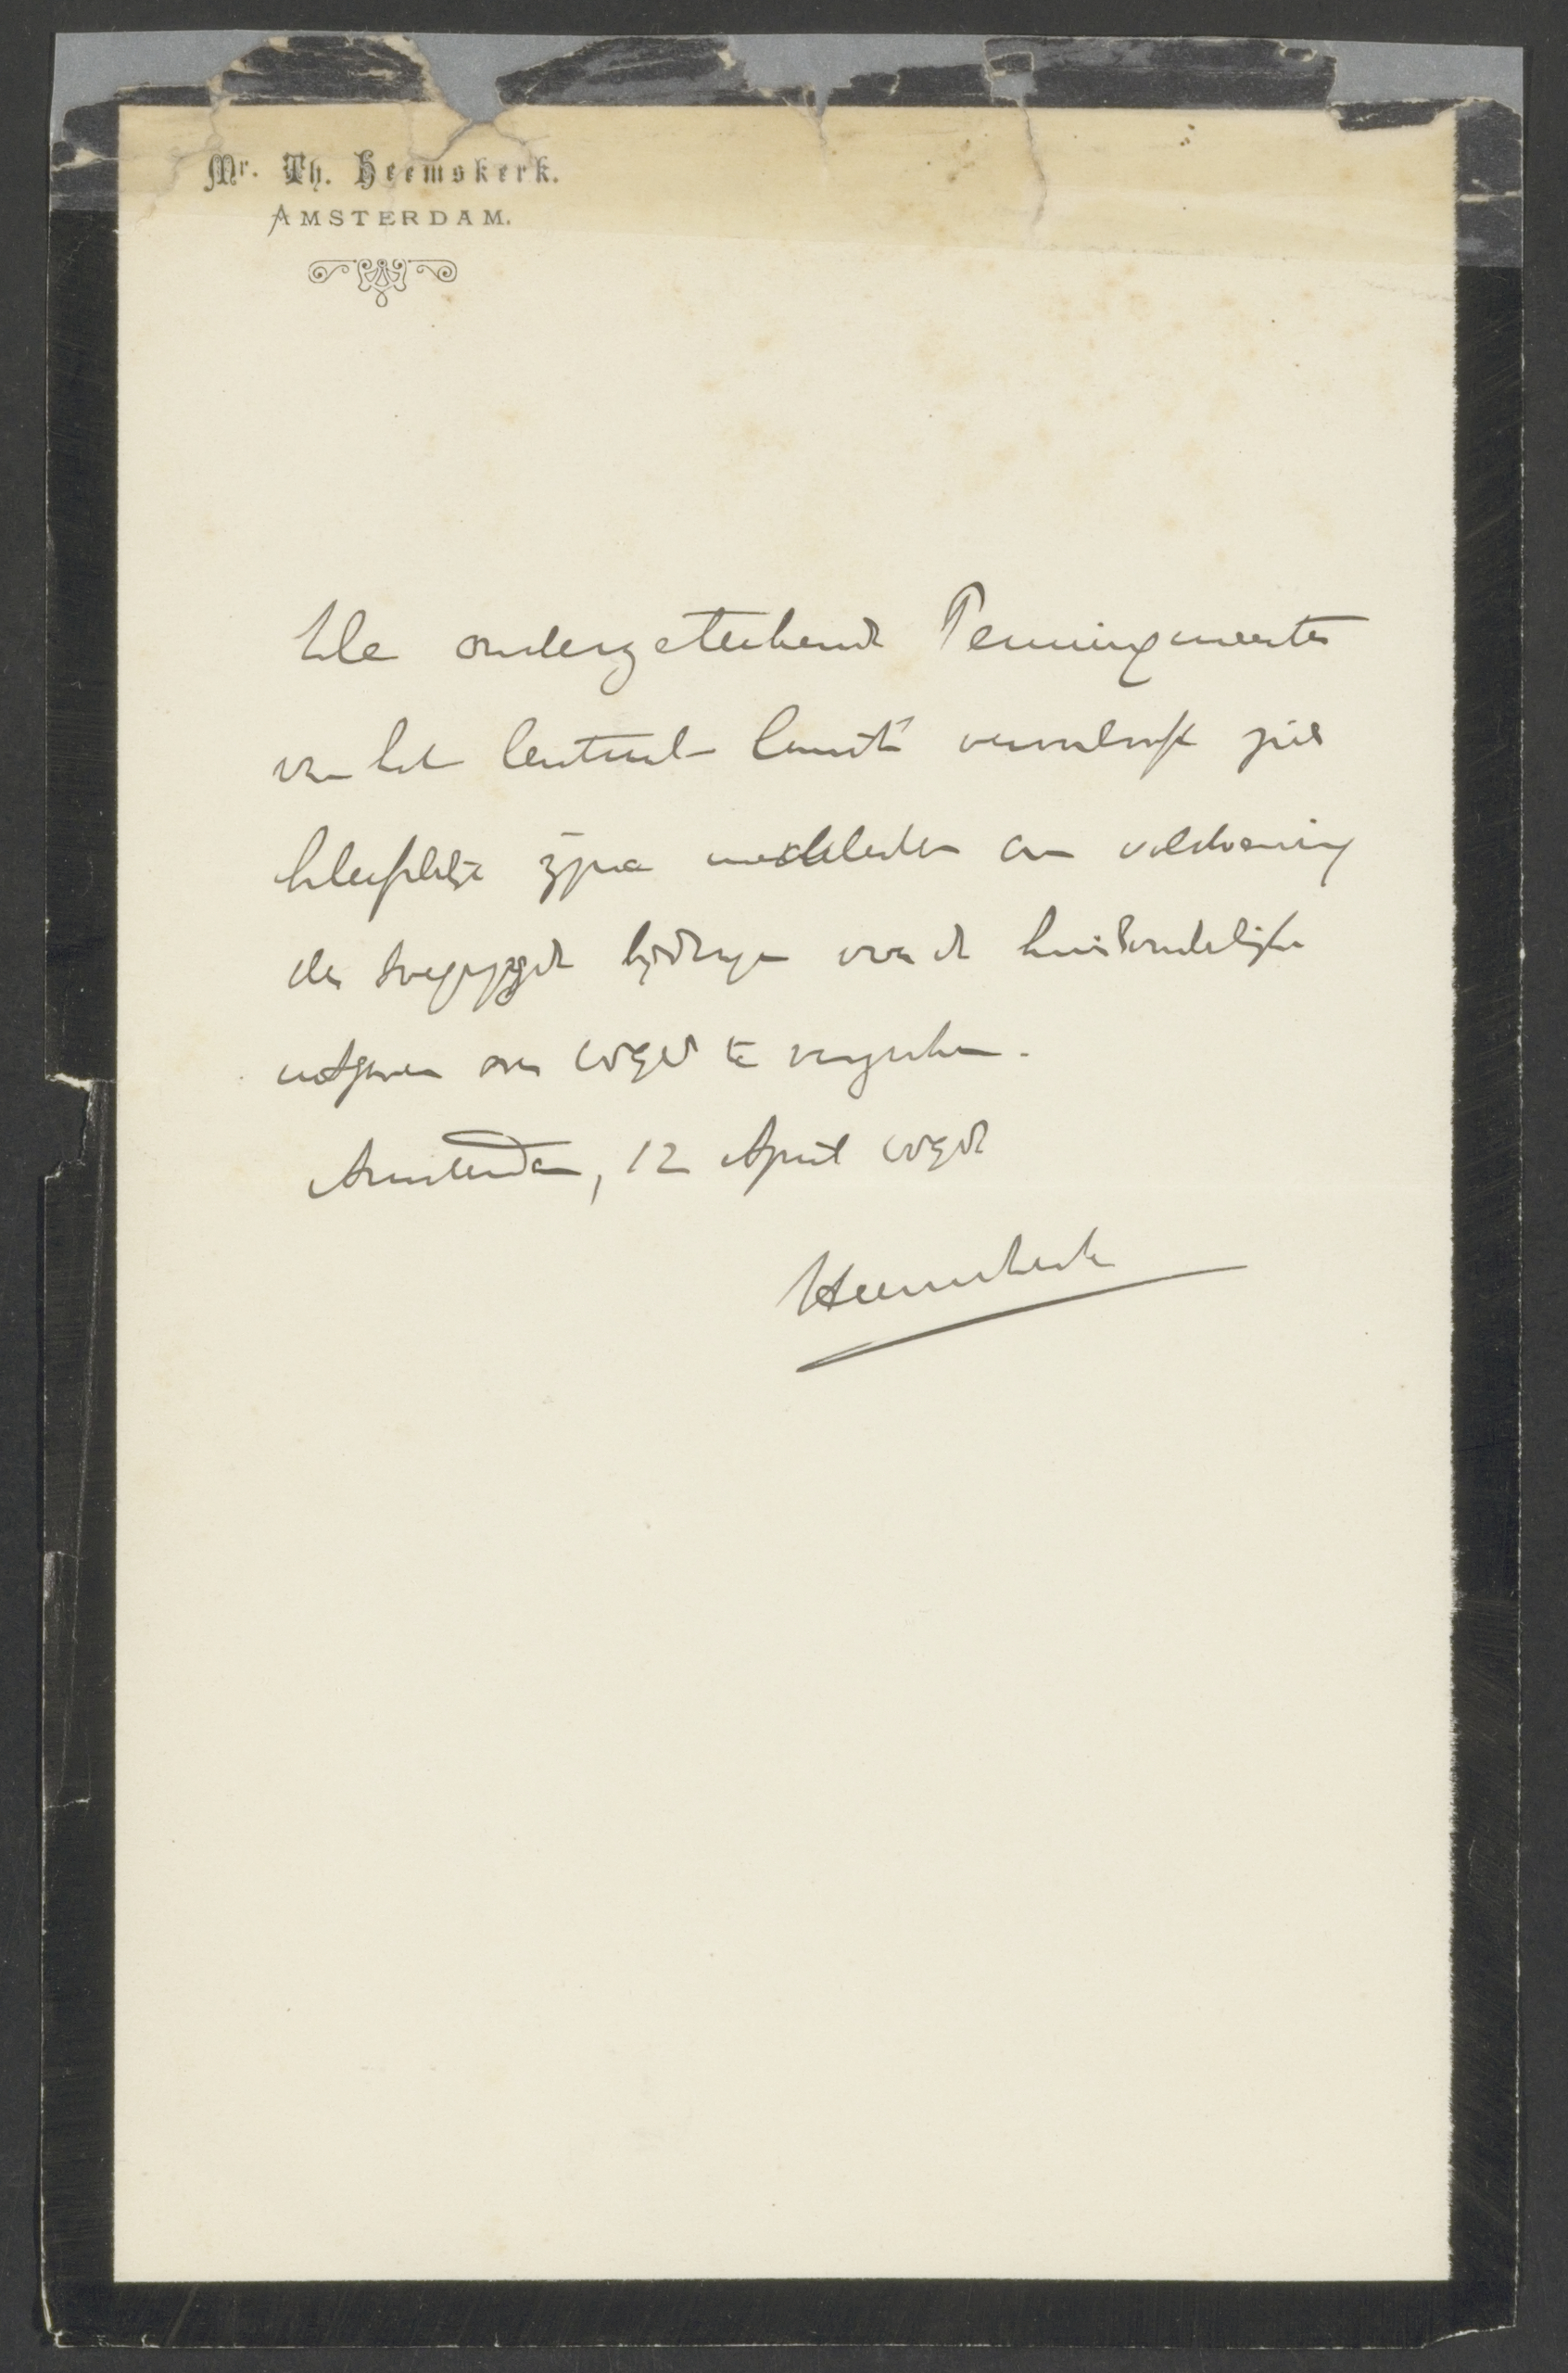 Mr. Th. Heemskerk.
AMSTERDAM.
De ondergeteekende Penningmeester
van het Centraal Comité veroorlooft zich
beleefdelijk zijne medeleden om voldoening
der toegezegde bijdragen voor de huishoudelijke
uitgaven over te verzoeken.
Amsterdam, 12 April
Heemskerk